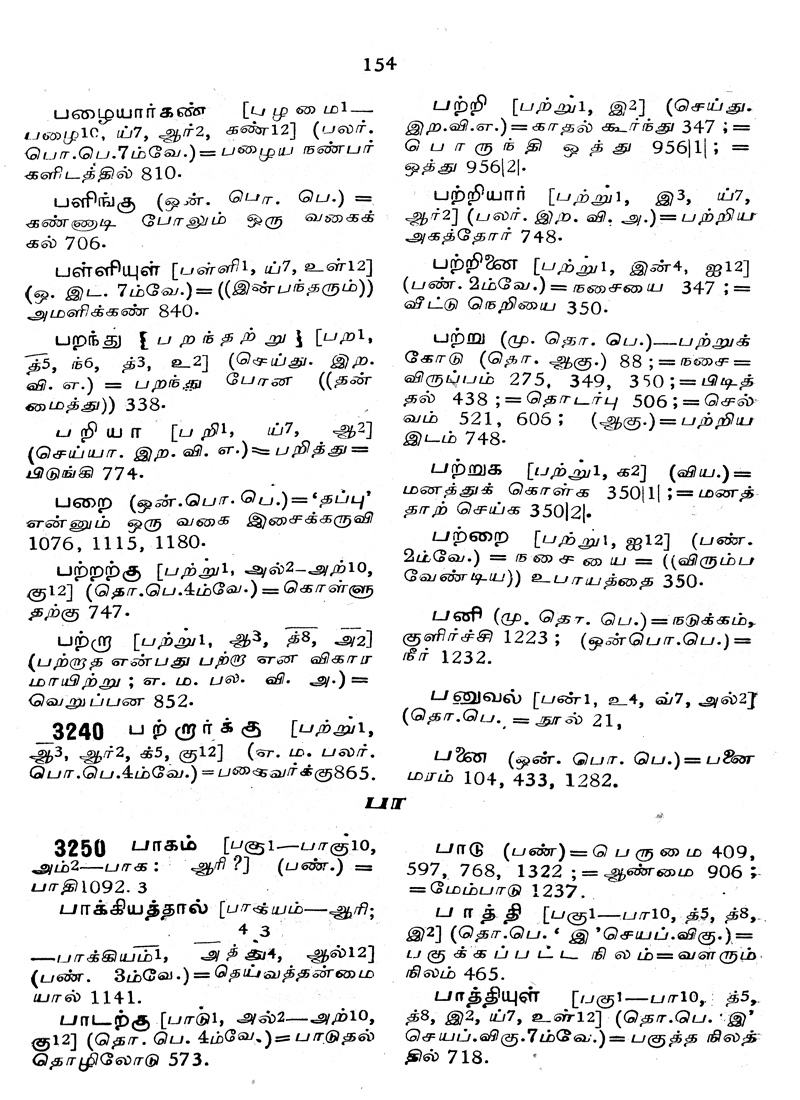 154
பழையார்கண் [பழமை1—
பழை10, ய்7, ஆர்2, கண்12] (பலர்.
பொ.பெ.7ம்வே.)=பழைய நண்பர்
களிடத்தில் 810.
பளிங்கு (ஒன். பொ. பெ.) =
கண்ணாடி போலும் ஒரு வகைக்
கல் 706.
பள்ளியுள் [பள்ளி1, ய்7, உள்12]
(ஒ. இட. 7ம்வே.)=((இன்பந்தரும்))
அமளிக்கண் 840.
பறந்து {பறந்தற்று} [பற1,
த்5, ந்6, த்3, உ2] (செய்து. இற.
வி. எ.) = பறந்து போன ((தன்
மைத்து)) 338.
பறியா [பறி1, ய்7, ஆ2]
(செய்யா. இற. வி. எ.)=பறித்து=
பிடுங்கி 774.
பறை (ஒன்.பொ. பெ.)=‘தப்பு’
என்னும் ஒரு வகை இசைக்கருவி
1076, 1115, 1180.
பற்றற்கு [பற்று1, அல்2—அற்10,
கு12] (தொ.பெ.4ம்வே.)=கொள்ளு
தற்கு 747.
பற்றா [பற்று1, ஆ3, த்8, அ2]
(பற்றாத என்பது பற்றா என விகார
மாயிற்று ; எ. ம. பல. வி. அ.)=
வெறுப்பன 852.
3240 பற்றார்க்கு [பற்று1,
ஆ3, ஆர்2, க்5, கு12] (எ. ம. பலர்.
பொ.பெ.4ம்வே.)=பகைவர்க்கு865.
பற்றி [பற்று1, இ2] (செய்து.
இற.வி.எ.)=காதல் கூர்ந்து 347 ;=
பொருந்தி ஒத்து 956|1| ; =
ஒத்து 956|2|.
பற்றியார் [பற்று1, இ3, ய்7,
ஆர்2] (பலர். இற. வி. அ.)=பற்றிய
அகத்தோர் 748.
பற்றினை [பற்று1, இன்4, ஐ12]
(பண். 2ம்வே.)=நசையை 347 ;=
வீட்டு நெறியை 350.
பற்று (மு. தொ. பெ.)—பற்றுக்
கோடு (தொ. ஆகு.) 88 ;=நசை=
விருப்பம் 275, 349, 350 ;=பிடித்
தல் 438 ;=தொடர்பு 506 ;=செல்
வம் 521, 606 ; (ஆகு.)=பற்றிய
இடம் 748.
பற்றுக [பற்று1, க2] (விய.)=
மனத்துக் கொள்க 350|1| ;=மனத்
தாற் செய்க 350|2|.
பற்றை [பற்று1, ஐ12] (பண்.
2ம்வே.) = நசையை = ((விரும்ப
வேண்டிய)) உபாயத்தை 350.
பனி (மு. தொ. பெ.)=நடுக்கம்,
குளிர்ச்சி 1223 ; (ஒன்பொ.பெ.)=
நீர் 1232.
பனுவல் [பன்1, உ4, வ்7, அல்2]
(தொ.பெ. = நூல் 21,
பனை (ஒன். பொ. பெ.)=பனை
மரம் 104, 433, 1282.
பா
3250 பாகம் [பகு1—பாகு10,
அம்2—பாக : ஆரி ?] (பண்.) =
பாதி1092. 3
பாக்கியத்தால் [பாக்யம்—ஆரி;
4 3
—பாக்கியம்1, அத்து4, ஆல்12]
(பண். 3ம்வே.)=தெய்வத்தன்மை
யால் 1141.
பாடற்கு [பாடு1, அல்2—அற்10,
கு12] (தொ. பெ. 4ம்வே.)=பாடுதல்
தொழிலோடு 573.
பாடு (பண்)=பெருமை 409,
597, 768, 1322 ;=ஆண்மை 906 ;
=மேம்பாடு 1237.
பாத்தி [பகு1—பா10, த்5, த்8,
இ2] (தொ.பெ. ‘ இ ’செயப்.விகு.)=
பகுக்கப்பட்ட நிலம்=வளரும்
நிலம் 465.
பாத்தியுள் [பகு1—பா10, த்5,
த்8, இ2, ய்7, உள்12] (தொ.பெ. ‘இ’
செயப்.விகு.7ம்வே.)=பகுத்த நிலத்
தில் 718.